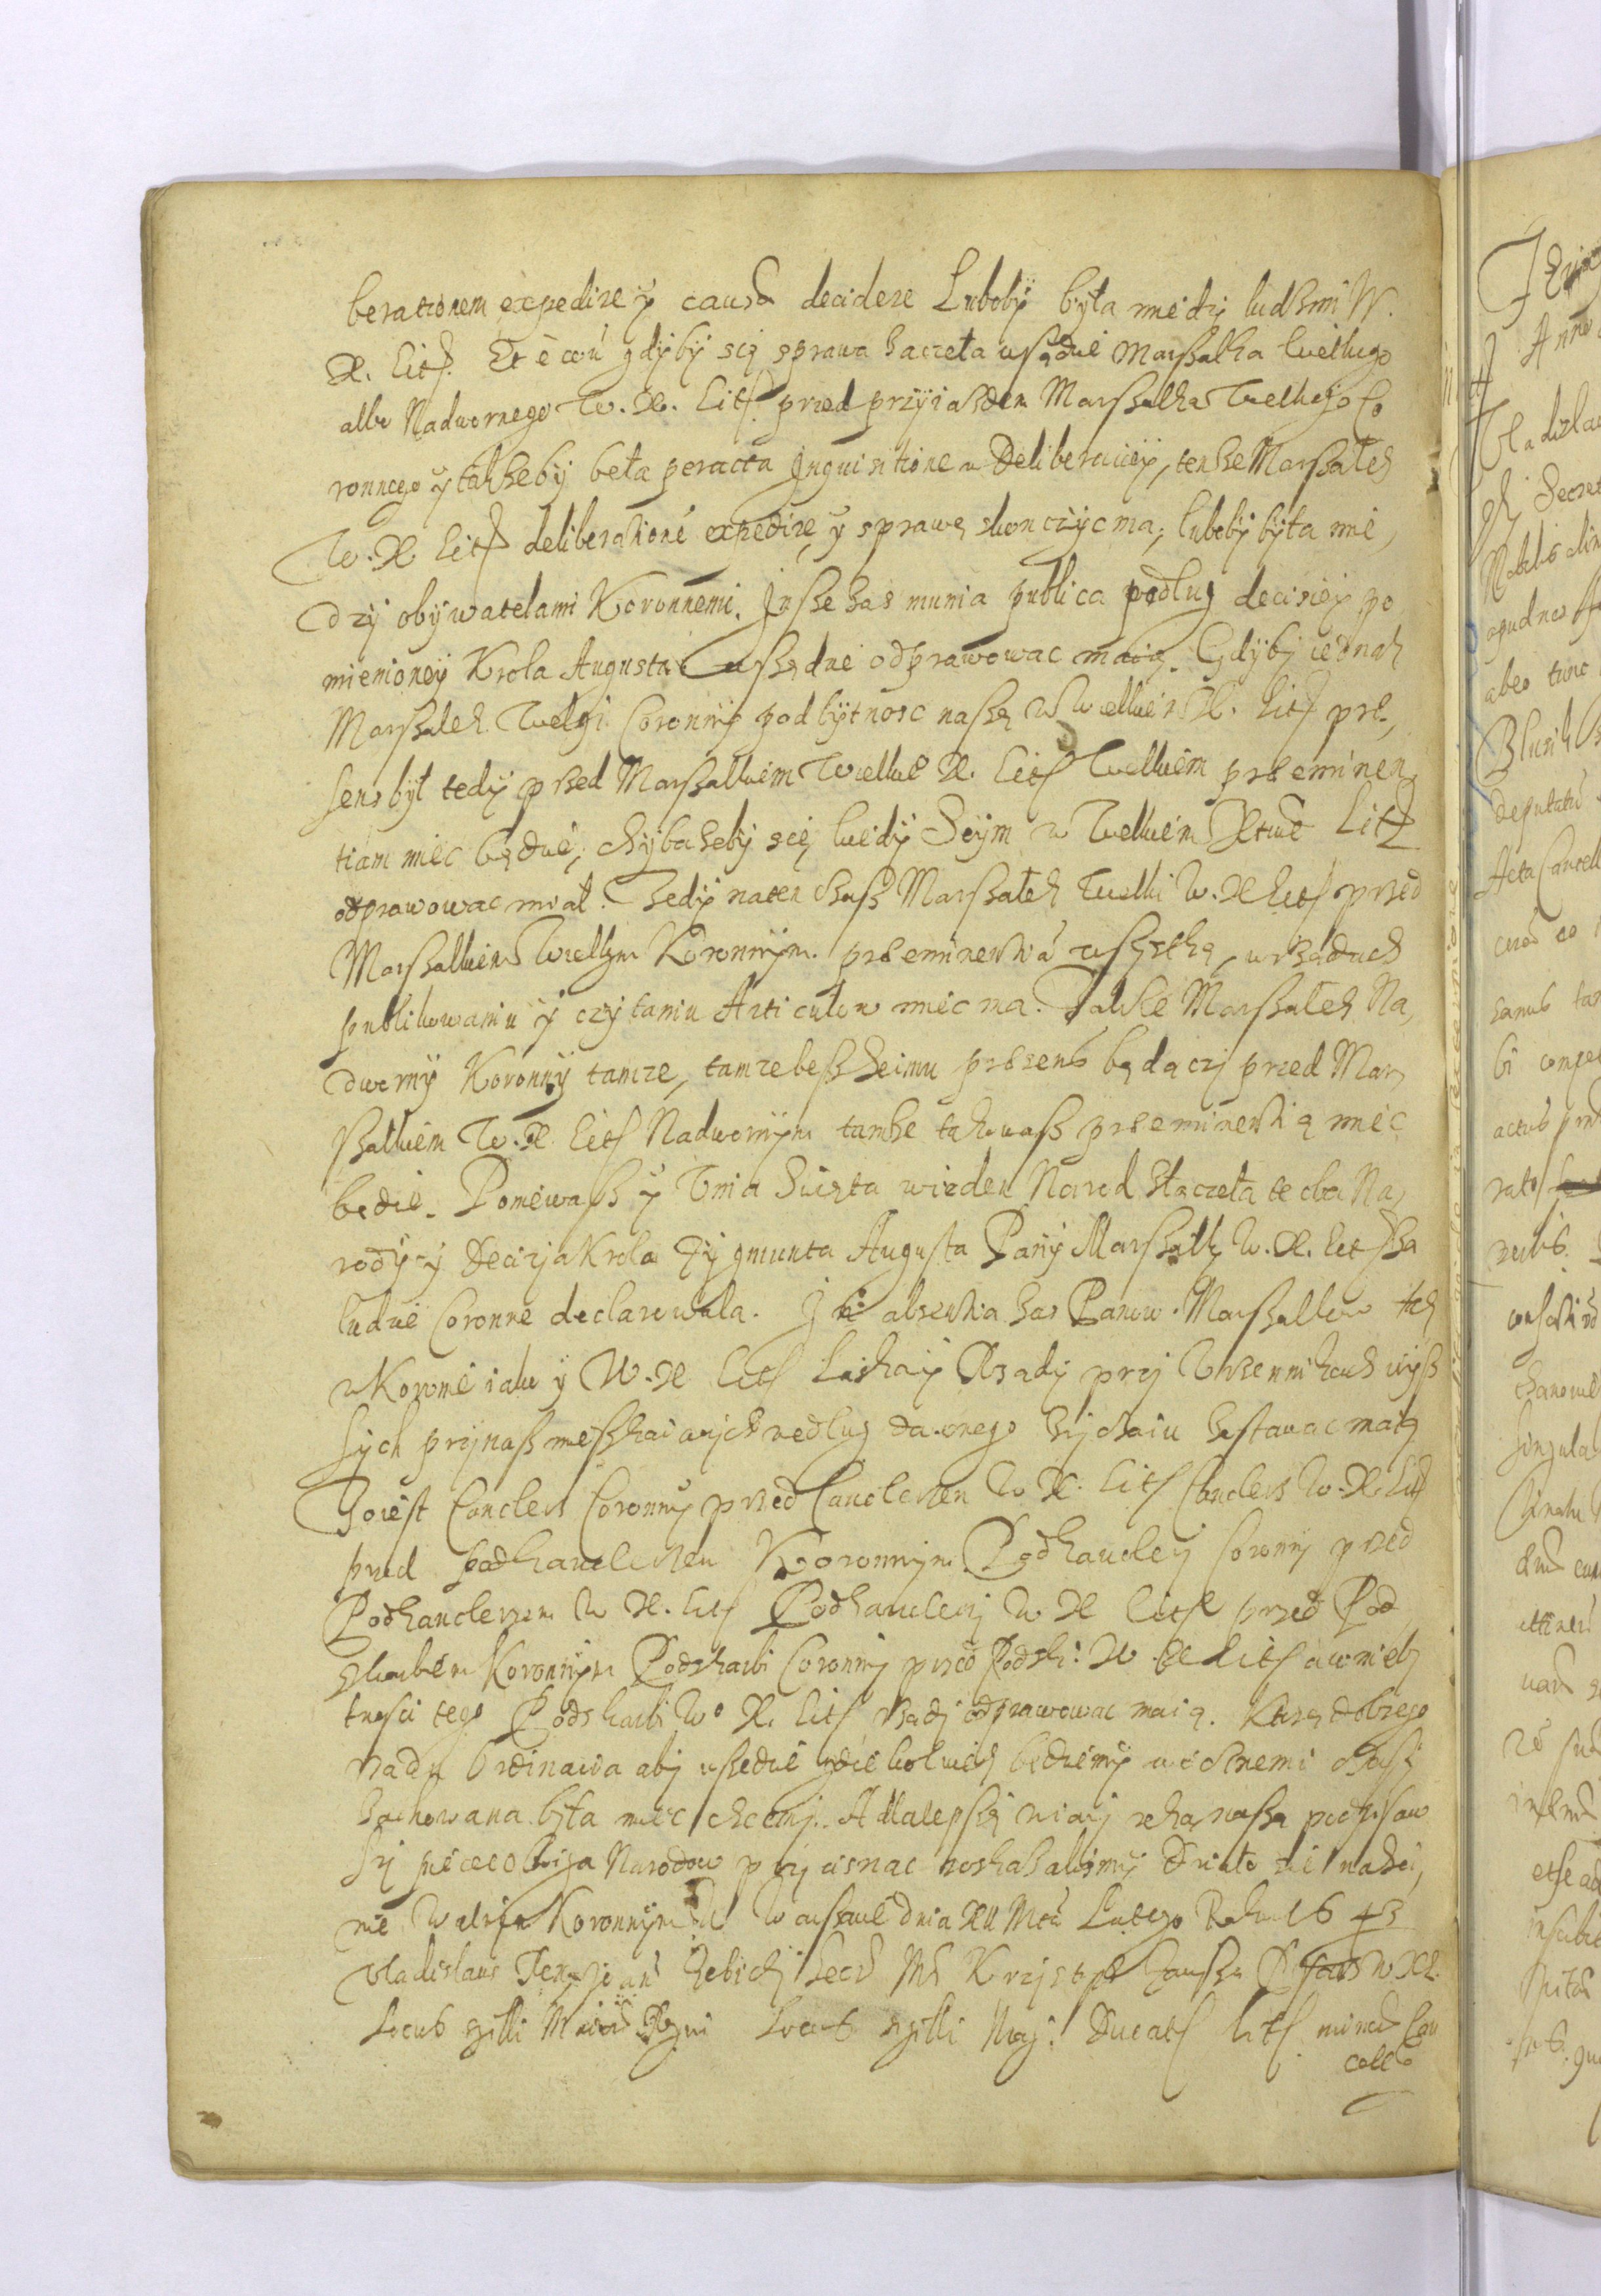 berationem expedire y causã decidere Luboby była miedzy ludzmi W.
X. Litt. Et è corũ gdyby się sprawa zaczeła w sądzie Marszałka Wielkiego
albo Nadwornego W. X. Litt przed przyiazdem Marszałka Wielkiego Co
ronnego y takzeby beła peracta Inquisitione w Deliberaciey, tenze Marszałek
W. X. Litt deliberationẽ expedire y sprawę skonczyc ma, luboby była mie,
dzy obywatelami Koronnemi. Insze zas munia publica podług decisiey po
mienioney Krola Augusta wszędzie odprawowac maią. Gdyby iednak
Marszałek Wielgi Coronny pod bytnosc naszą w Wielkim X. Litt prę,
sens był tedy przed Marszałkiem Wielkiẽ X. Litt Wielkiem præeminen
tiam miec będzie, chybazeby się kiedy Seym w Wielkiem Xtwie Litt
odprawowac miał. Tedy naten czas Marszałek Wielki W. X Litt przed
Marszałkiem Wielkym Koronnym præeminentią wszystką, w sądach
publikowaniu y czytaniu Articulow miec ma. Także Marszałek Na,
dworny Koronny tamze, tamze bez Seimu præsens będąc przed Mar
szałkiem W. X Litt Nadwornym tamze takowasz præeminentią miec
będzie. Poniewasz y Unia Swięta w ieden Narod złączeła te oba Na,
rody y Decizja Krola Zygmunta Augusta Pany Marszałky W. X. Litt za
ludzie Coronne declarowala. In absentia zas Panow Marszałkow tak
w Koronie iako y W. X Litt Laskay Rządy przy Urzennikach wysz
szych przy nas mieszkaiących wedlug dawnego zwyczaiu zostawac maią
To iest Canclerz Coronny przed Canclerzem W X. Litt Canclerz W. X. Litt
przed Podkanclerzem Koronnym Podkanclerzy Coronny przed
Podkanclerzem W X. Litt Podkanclerzy W X Litt przed Pod
skarbiem Koronnym Podskarbi Coronny przed Podski: W X Litt a w nieby
tnosci tego Podskarbi Wo X. Litt rządy odprawowac maią. Którą dobrego
rządu Ordinatia aby wszędzie gdzie kolwiek będziemy wiecznemi czasy
zachowana była miec chcemy. A dla lepszey wiary ręką naszą podpisaw
szy pieczęc oboyga Narodow przycisnąc roskazalismy Działo się na Sey,
mie Walnym Koronnym W Warszawie dnia XII Mca Lutego Roku 1643
Vladislaus Rex Jan Gebicky Secr Mt Krzysztoph W. X L.
Locus sigilli Maioris Regni Locus sigilli Maj: Ducats Litt minoris Can
cell